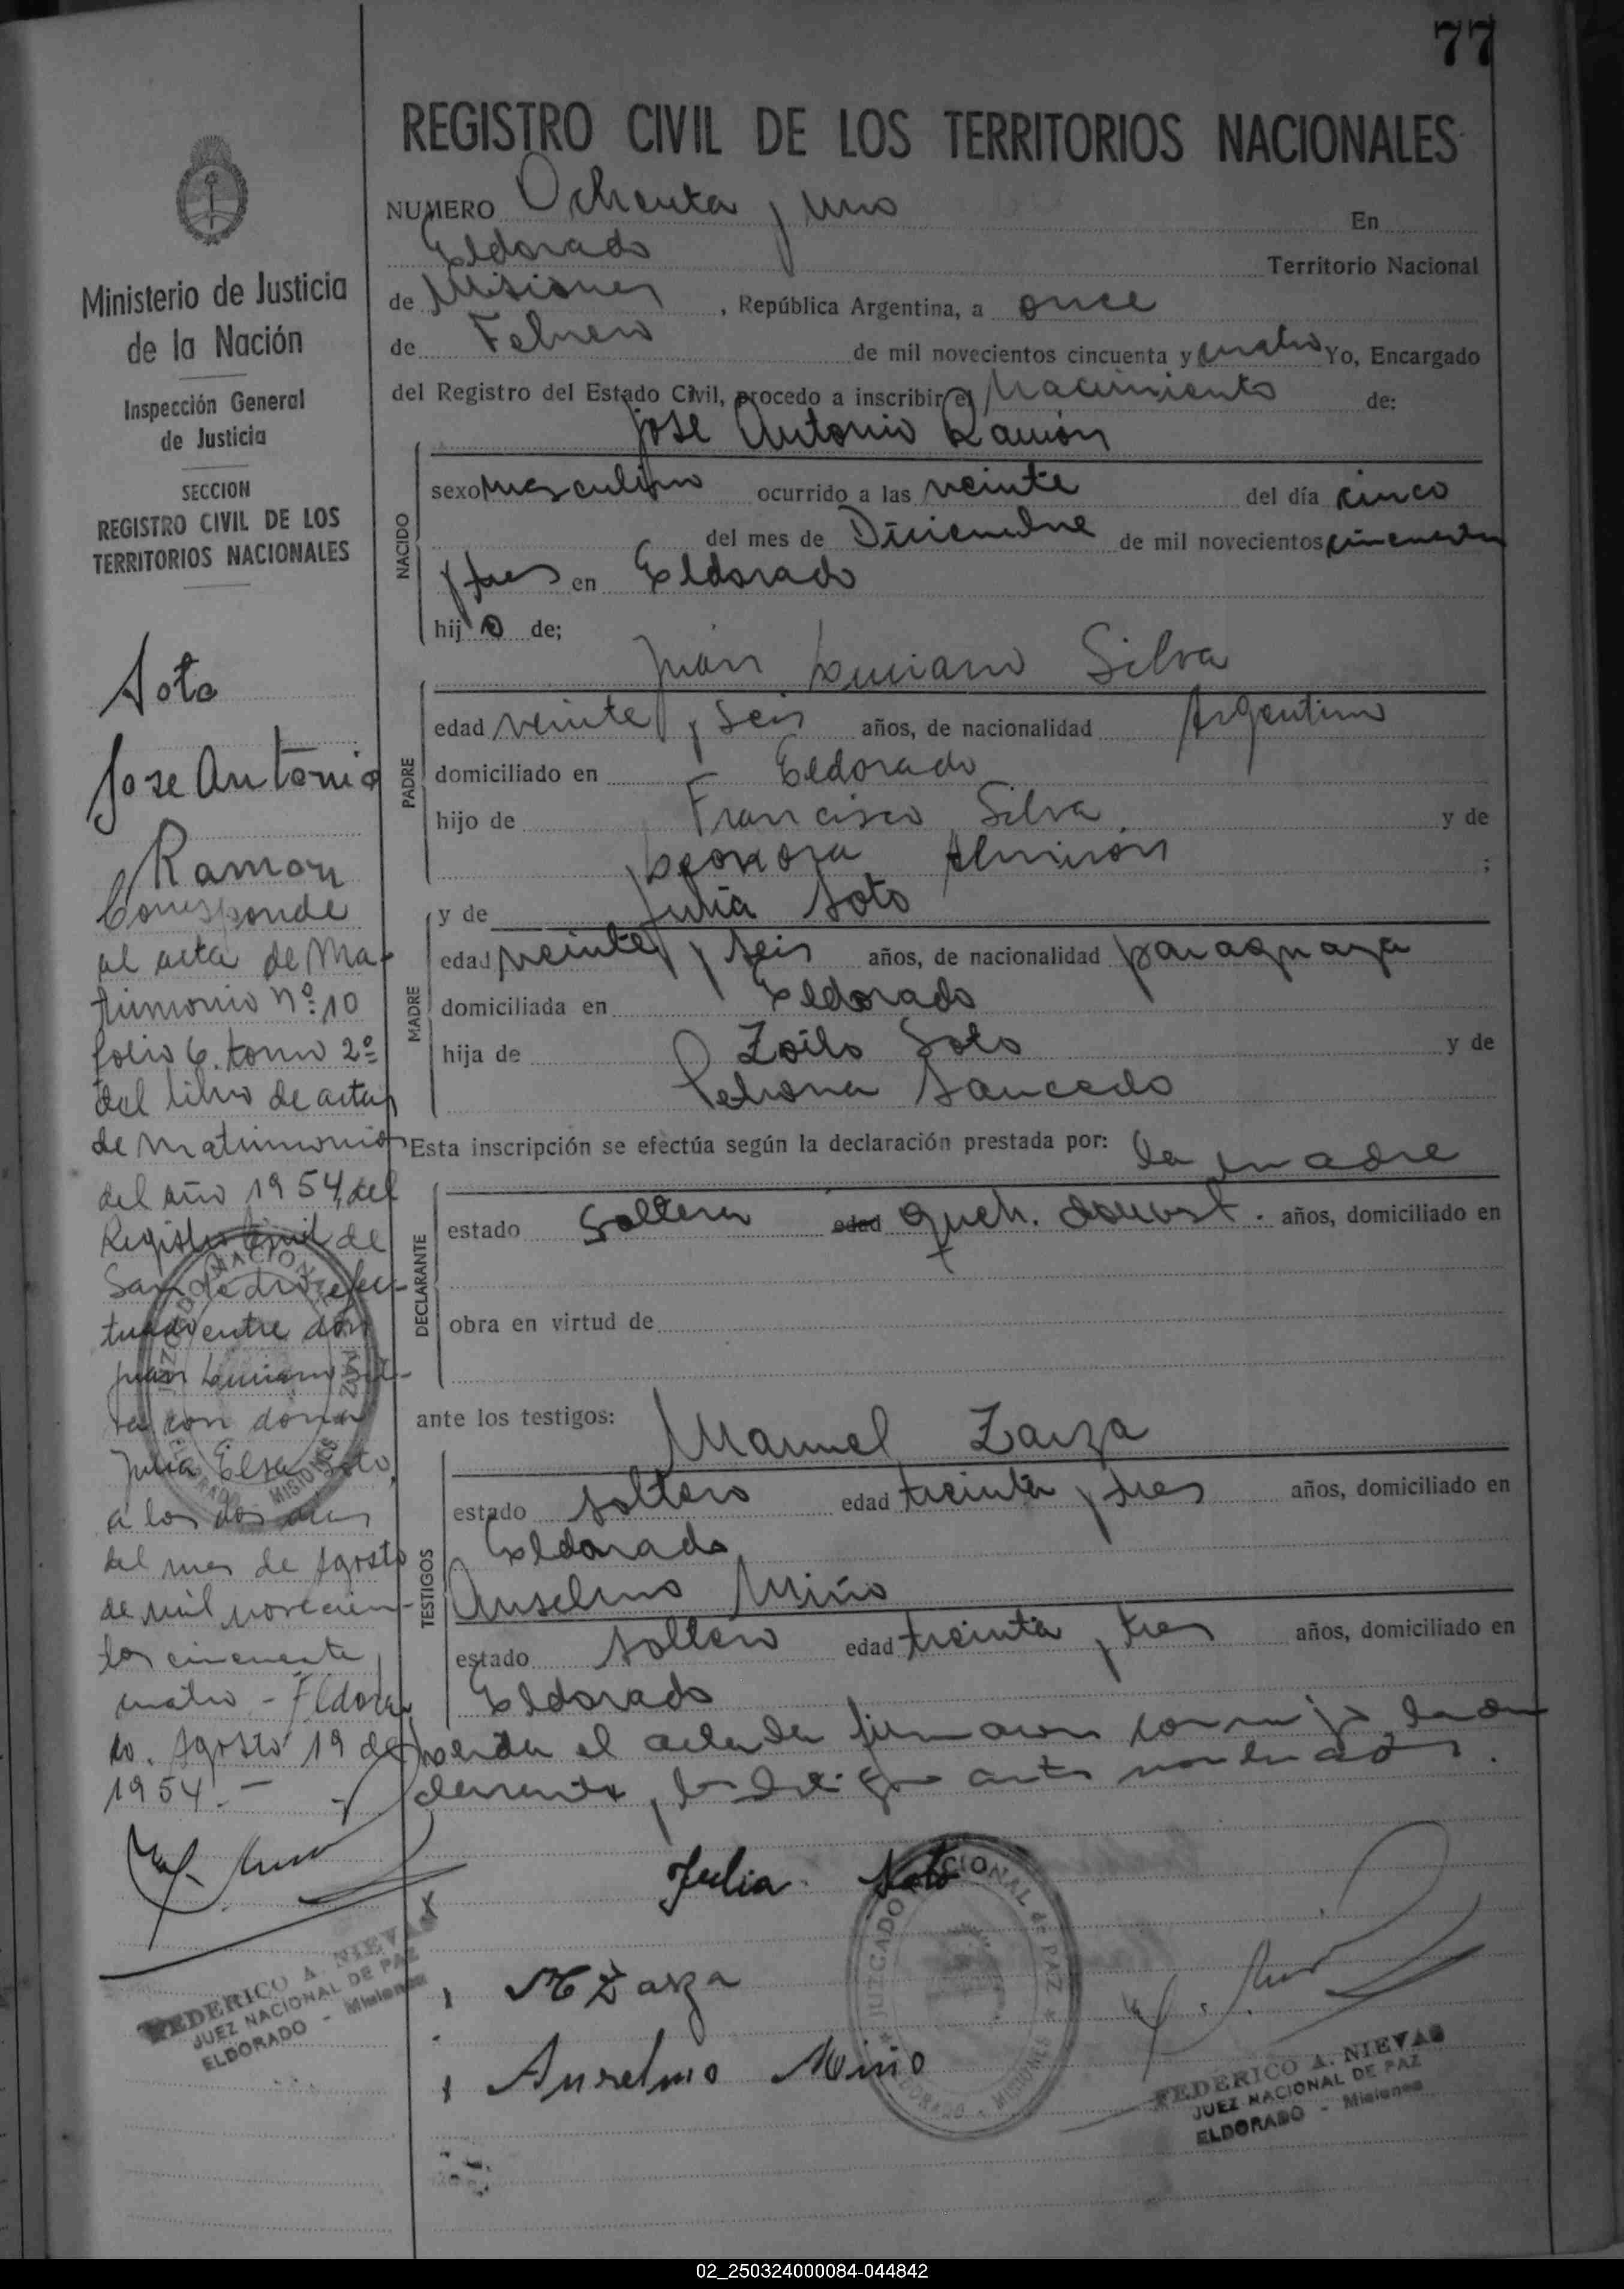 77
REGISTRO CIVIL DE LOS TERRITORIOS NACIONALES
NUMERO Ochenta y uno En
Eldorado Territorio Nacional
de Misiones, República Argentina, a once
de Febrero de mil novecientos cincuenta y cuatro Yo, Encargado
del Registro del Estado Civil, procedo a inscribir el Nacimiento de:
Jose Antonio Ramón
NACIDO
sexo masculino ocurrido a las veinte del día cinco
del mes de Diciembre de mil novecientos cincuenta
y tres en Eldorado
hijo de;
Juan Luciano Silva
PADRE
edad veinte y seis años, de nacionalidad Argentino
domiciliado en Eldorado
hijo de Francisco Silva y de
Leonora Almiron ;
y de Julia Soto
MADRE
edad veinte y seis años, de nacionalidad paraguaya
domiciliada en Eldorado
hija de Zoilo Soto y de
Petrona Saucedo
Esta inscripción se efectúa según la declaración prestada por: la madre
DECLARANTE
estado Soltera edad queh. domest. años, domiciliado en
obra en virtud de
ante los testigos: Manuel Zarza
TESTIGOS
estado soltero edad treinta y tres años, domiciliado en
Eldorado
Anselmo Miño
estado soltero edad treinta y tres años, domiciliado en
Eldorado
el acta la firmaron conmigo la
y los testigos antes nombrados.
Julia Soto
M Zarza
Anselmo Miño
JUZGADO NACIONAL de PAZ
ELDORADO - MISIONES
FEDERICO A. NIEVAS
JUEZ NACIONAL DE PAZ
ELDORADO - Misiones
Ministerio de Justicia
de la Nación
Inspección General
de Justicia
SECCION
REGISTRO CIVIL DE LOS
TERRITORIOS NACIONALES
Soto
Jose Antonio
Ramon
Corresponde
al acta de Ma-
trimonio nº 10
folio 6. tomo 2º
del libro de actas
de Matrimonios
del año 1954, del
Registro Civil de
San Pedro efec-
tuado entre don
Juan Luciano Sil-
va con doña
Julia Elsa Soto,
a los dos dias
del mes de Agosto
de mil novecien-
tos cincuenta y
cuatro - Eldora
do. Agosto 19 de
1954.-
JUZGADO NACIONAL DE PAZ
ELDORADO MISIONES
FEDERICO A. NIEVAS
JUEZ NACIONAL DE PAZ
ELDORADO - Misiones
02_250324000084-044842